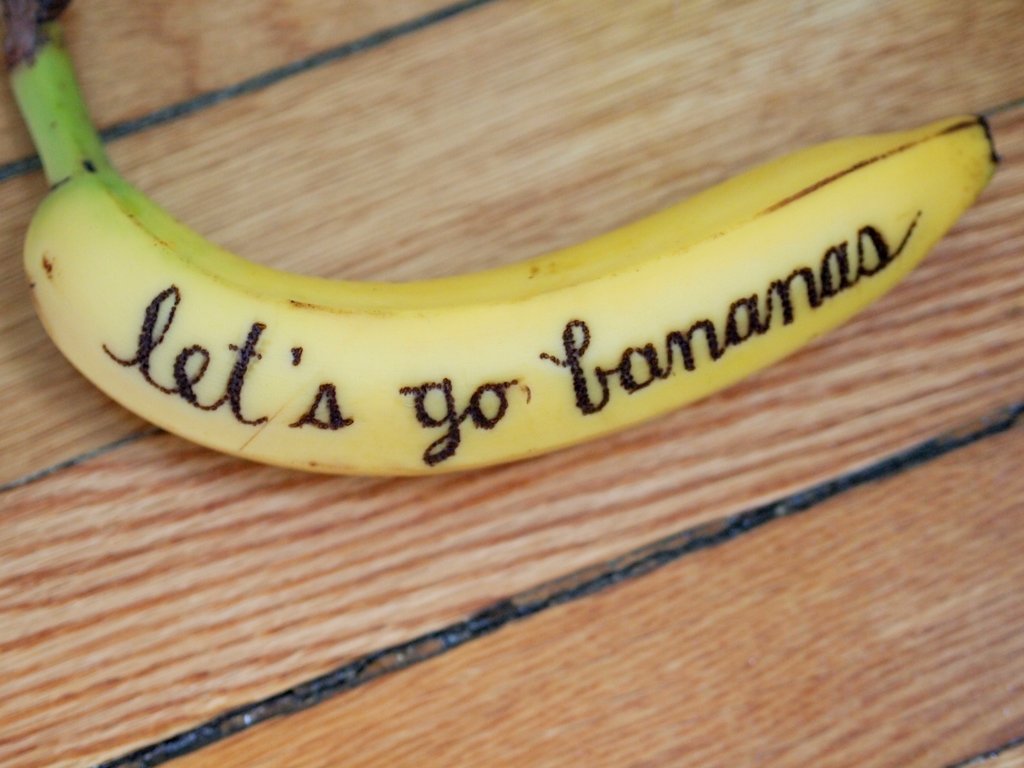 let's go bananas